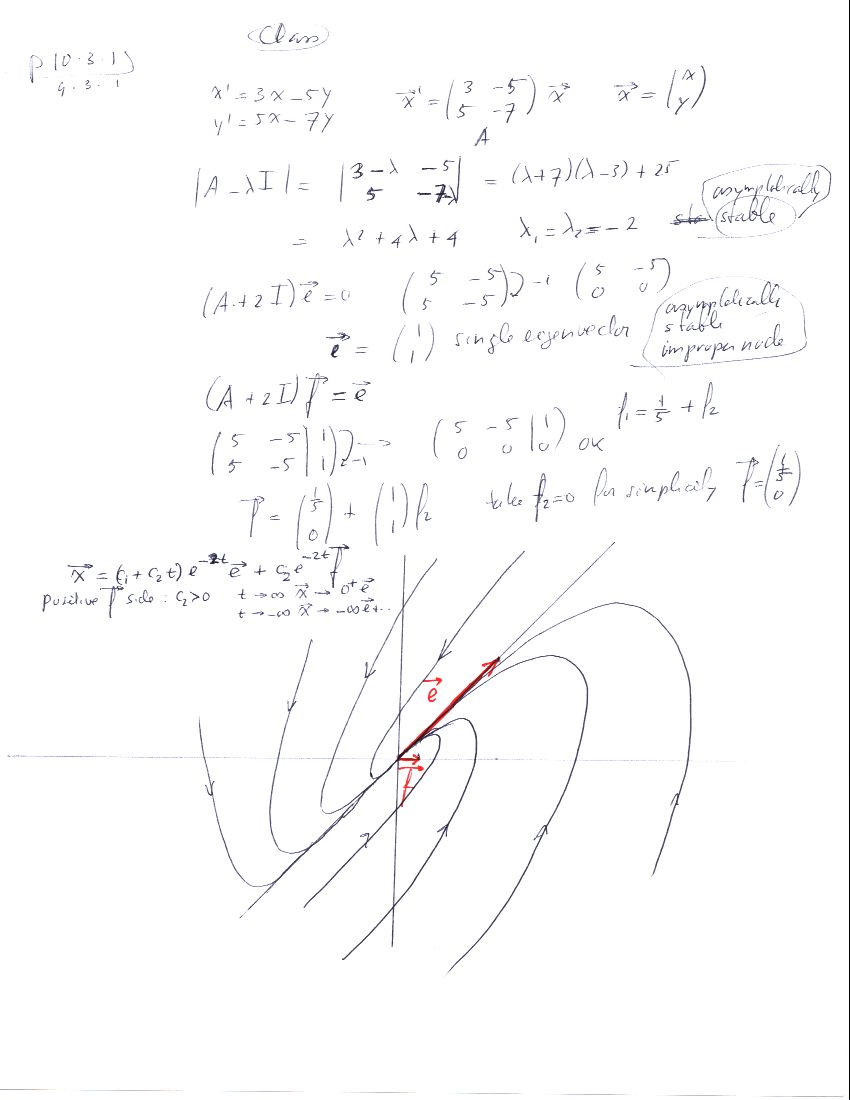 Class
P 10.3.1)
9.3.1
x' = 3x - 5y
y' = 5x - 7y
x⃗' = (3 -5; 5 -7) x⃗   x⃗ = (x; y)
A
|A - λI| = |3-λ -5; 5 -7-λ| = (λ+7)(λ-3) + 25
= λ² + 4λ + 4   λ₁ = λ₂ = -2   stable
asymptotically
(A + 2I) e⃗ = 0   (5 -5; 5 -5) -1 (5 -5; 0 0)
e⃗ = (1; 1) single eigenvector
asymptotically
stable
improper node
(A + 2I) f⃗ = e⃗
(5 -5 | 1; 5 -5 | 1) -1 → (5 -5 | 1; 0 0 | 0) OK   f₁ = 1/5 + f₂
f⃗ = (1/5; 0) + (1; 1) f₂   take f₂=0 for simplicity f⃗ = (1/5; 0)
x⃗ = (c₁ + c₂t) e^-2t e⃗ + c₂ e^-2t f⃗
positive f⃗ side : c₂>0   t → ∞ x⃗ → 0⁺ e⃗
t → -∞ x⃗ → -∞ e⃗ + ..
e⃗
f⃗